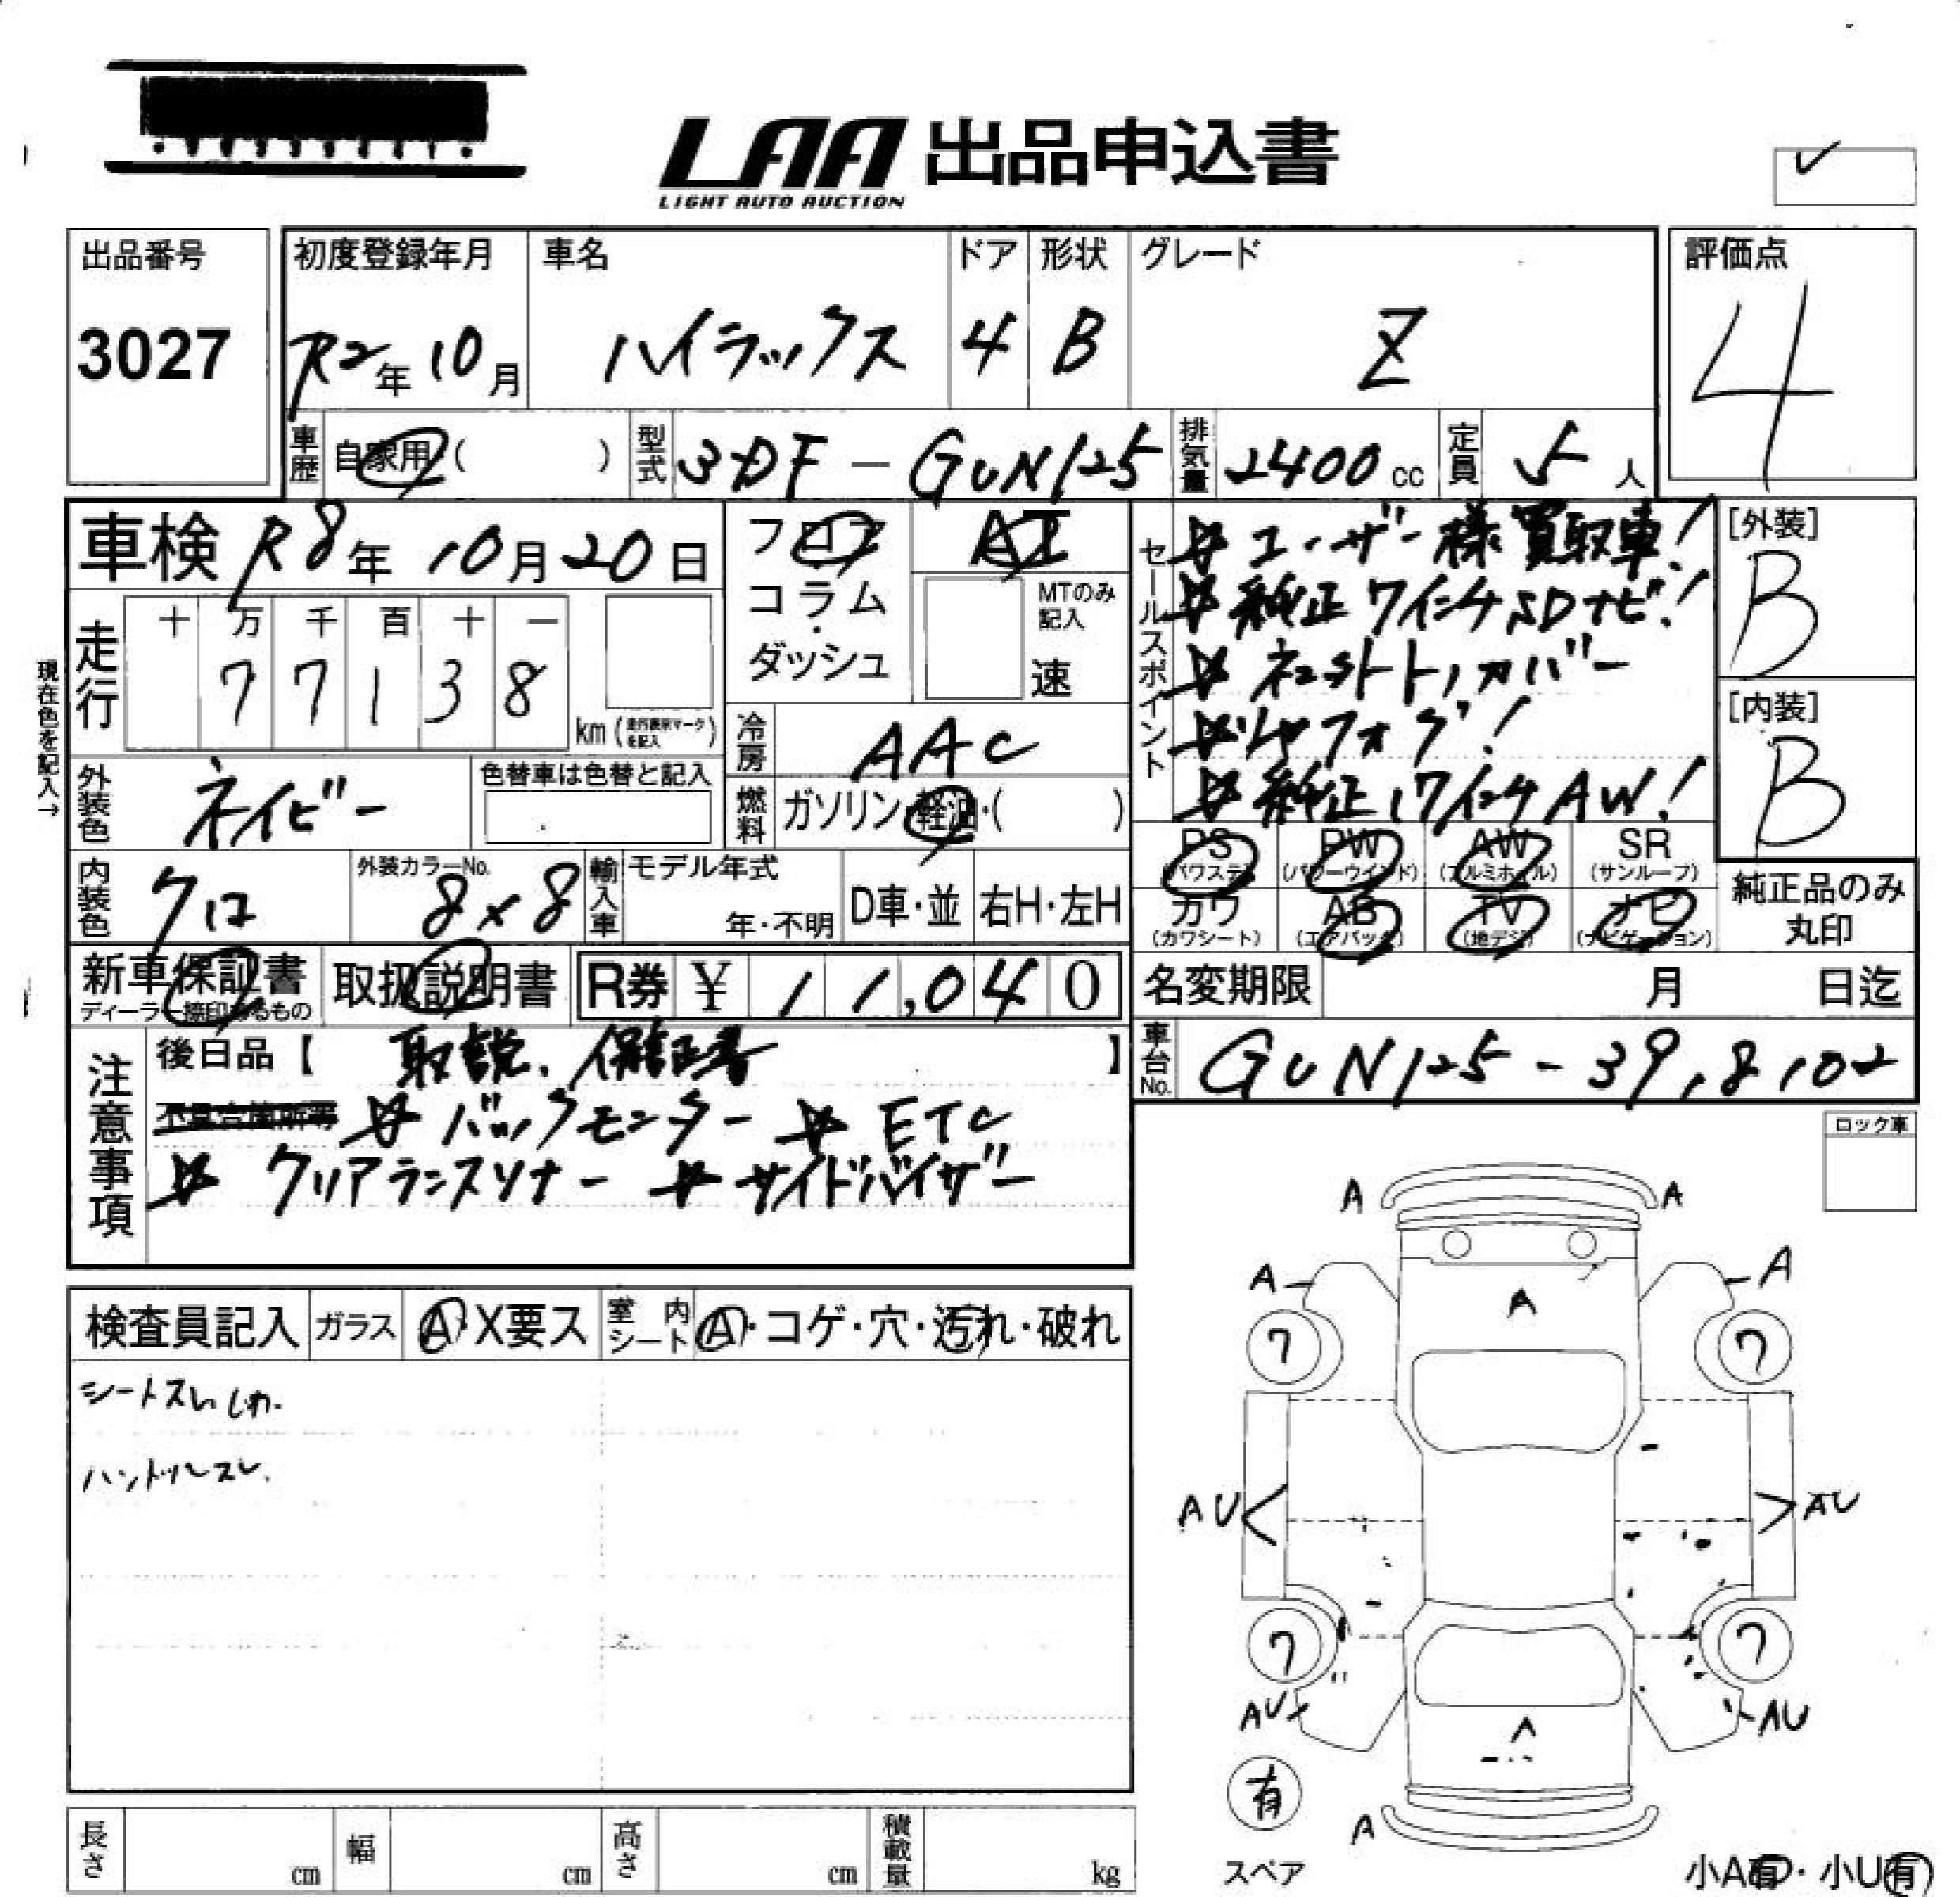 LAA 出品申込書
LIGHT AUTO AUCTION
出品番号
3027
初度登録年月 車名 ドア 形状 グレード
R2年 10月 ハイラックス 4 B Z
評価点
4
車歴 自家用( ) 型式 3DF-GUN125 排気量 2400cc 定員 5人
車検 R8年 10月20日
フロア
コラム・
ダッシュ
AT
MTのみ
記入
速
走行
十 万 千 百 十 一
7 7 1 3 8
km (走行表示マークを記入)
現在色を記入→
冷房 AAC
外装色 ネイビー 色替車は色替と記入
燃料 ガソリン・軽油・( )
セールスポイント
☆ユーザー様買取車!
☆純正7インチSDナビ!
☆トノカバー
☆フォグ!
☆純正17インチAW!
[外装]
B
[内装]
B
内装色 クロ 外装カラーNo. 8×8
輸入車 モデル年式 年・不明 D車・並 右H・左H
PS AW PW SR
(パワステ) (パワーウインド) (アルミホイル) (サンルーフ)
カワ AB TV ナビ
(カワシート) (エアバック) (地デジ) (ナビゲーション)
純正品のみ
丸印
新車保証書 取扱説明書 R券 ¥11,040
ディーラー捺印あるもの
名変期限 月 日迄
注意事項
後日品【 取説、保証書 】
車台No. GUN125-39,8102
不具合箇所等 ☆バックモニター ☆ETC
☆クリアランスソナー ☆サイドバイザー
ロック車
検査員記入 ガラス A・X要ス 室内シート A・コゲ・穴・汚れ・破れ
シートスレしわ.
ハンドルスレ.
A A
A A
A
7 7
AU AU
7 7
AU AU
A
有
A
スペア
小A有・小U有
長さ cm 幅 cm 高さ cm 積載量 kg